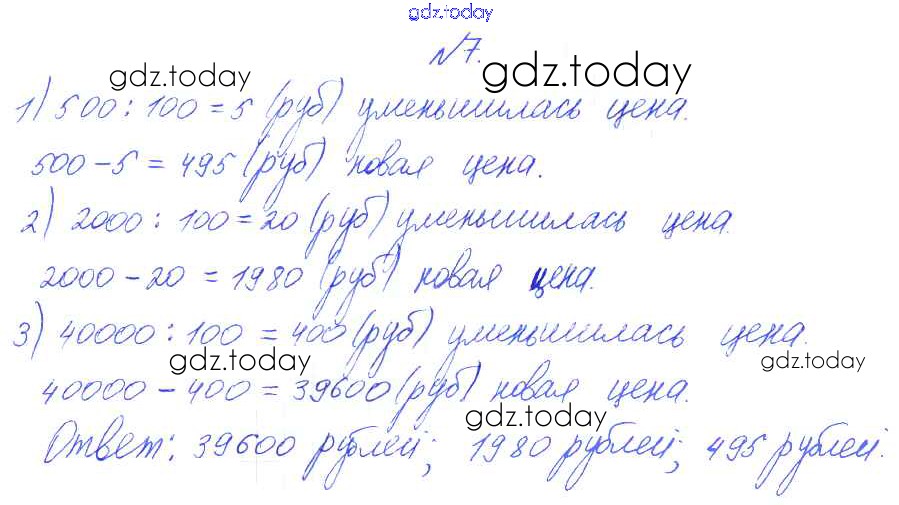 gdz.today
№7.
gdz.today gdz.today
1) 500 : 100 = 5 (руб) уменьшилась цена.
500 - 5 = 495 (руб) новая цена.
2) 2000 : 100 = 20 (руб) уменьшилась цена.
2000 - 20 = 1980 (руб) новая цена.
3) 40000 : 100 = 400 (руб) уменьшилась цена.
gdz.today gdz.today
40000 - 400 = 39600 (руб) новая цена.
gdz.today
Ответ: 39600 рублей; 1980 рублей; 495 рублей.